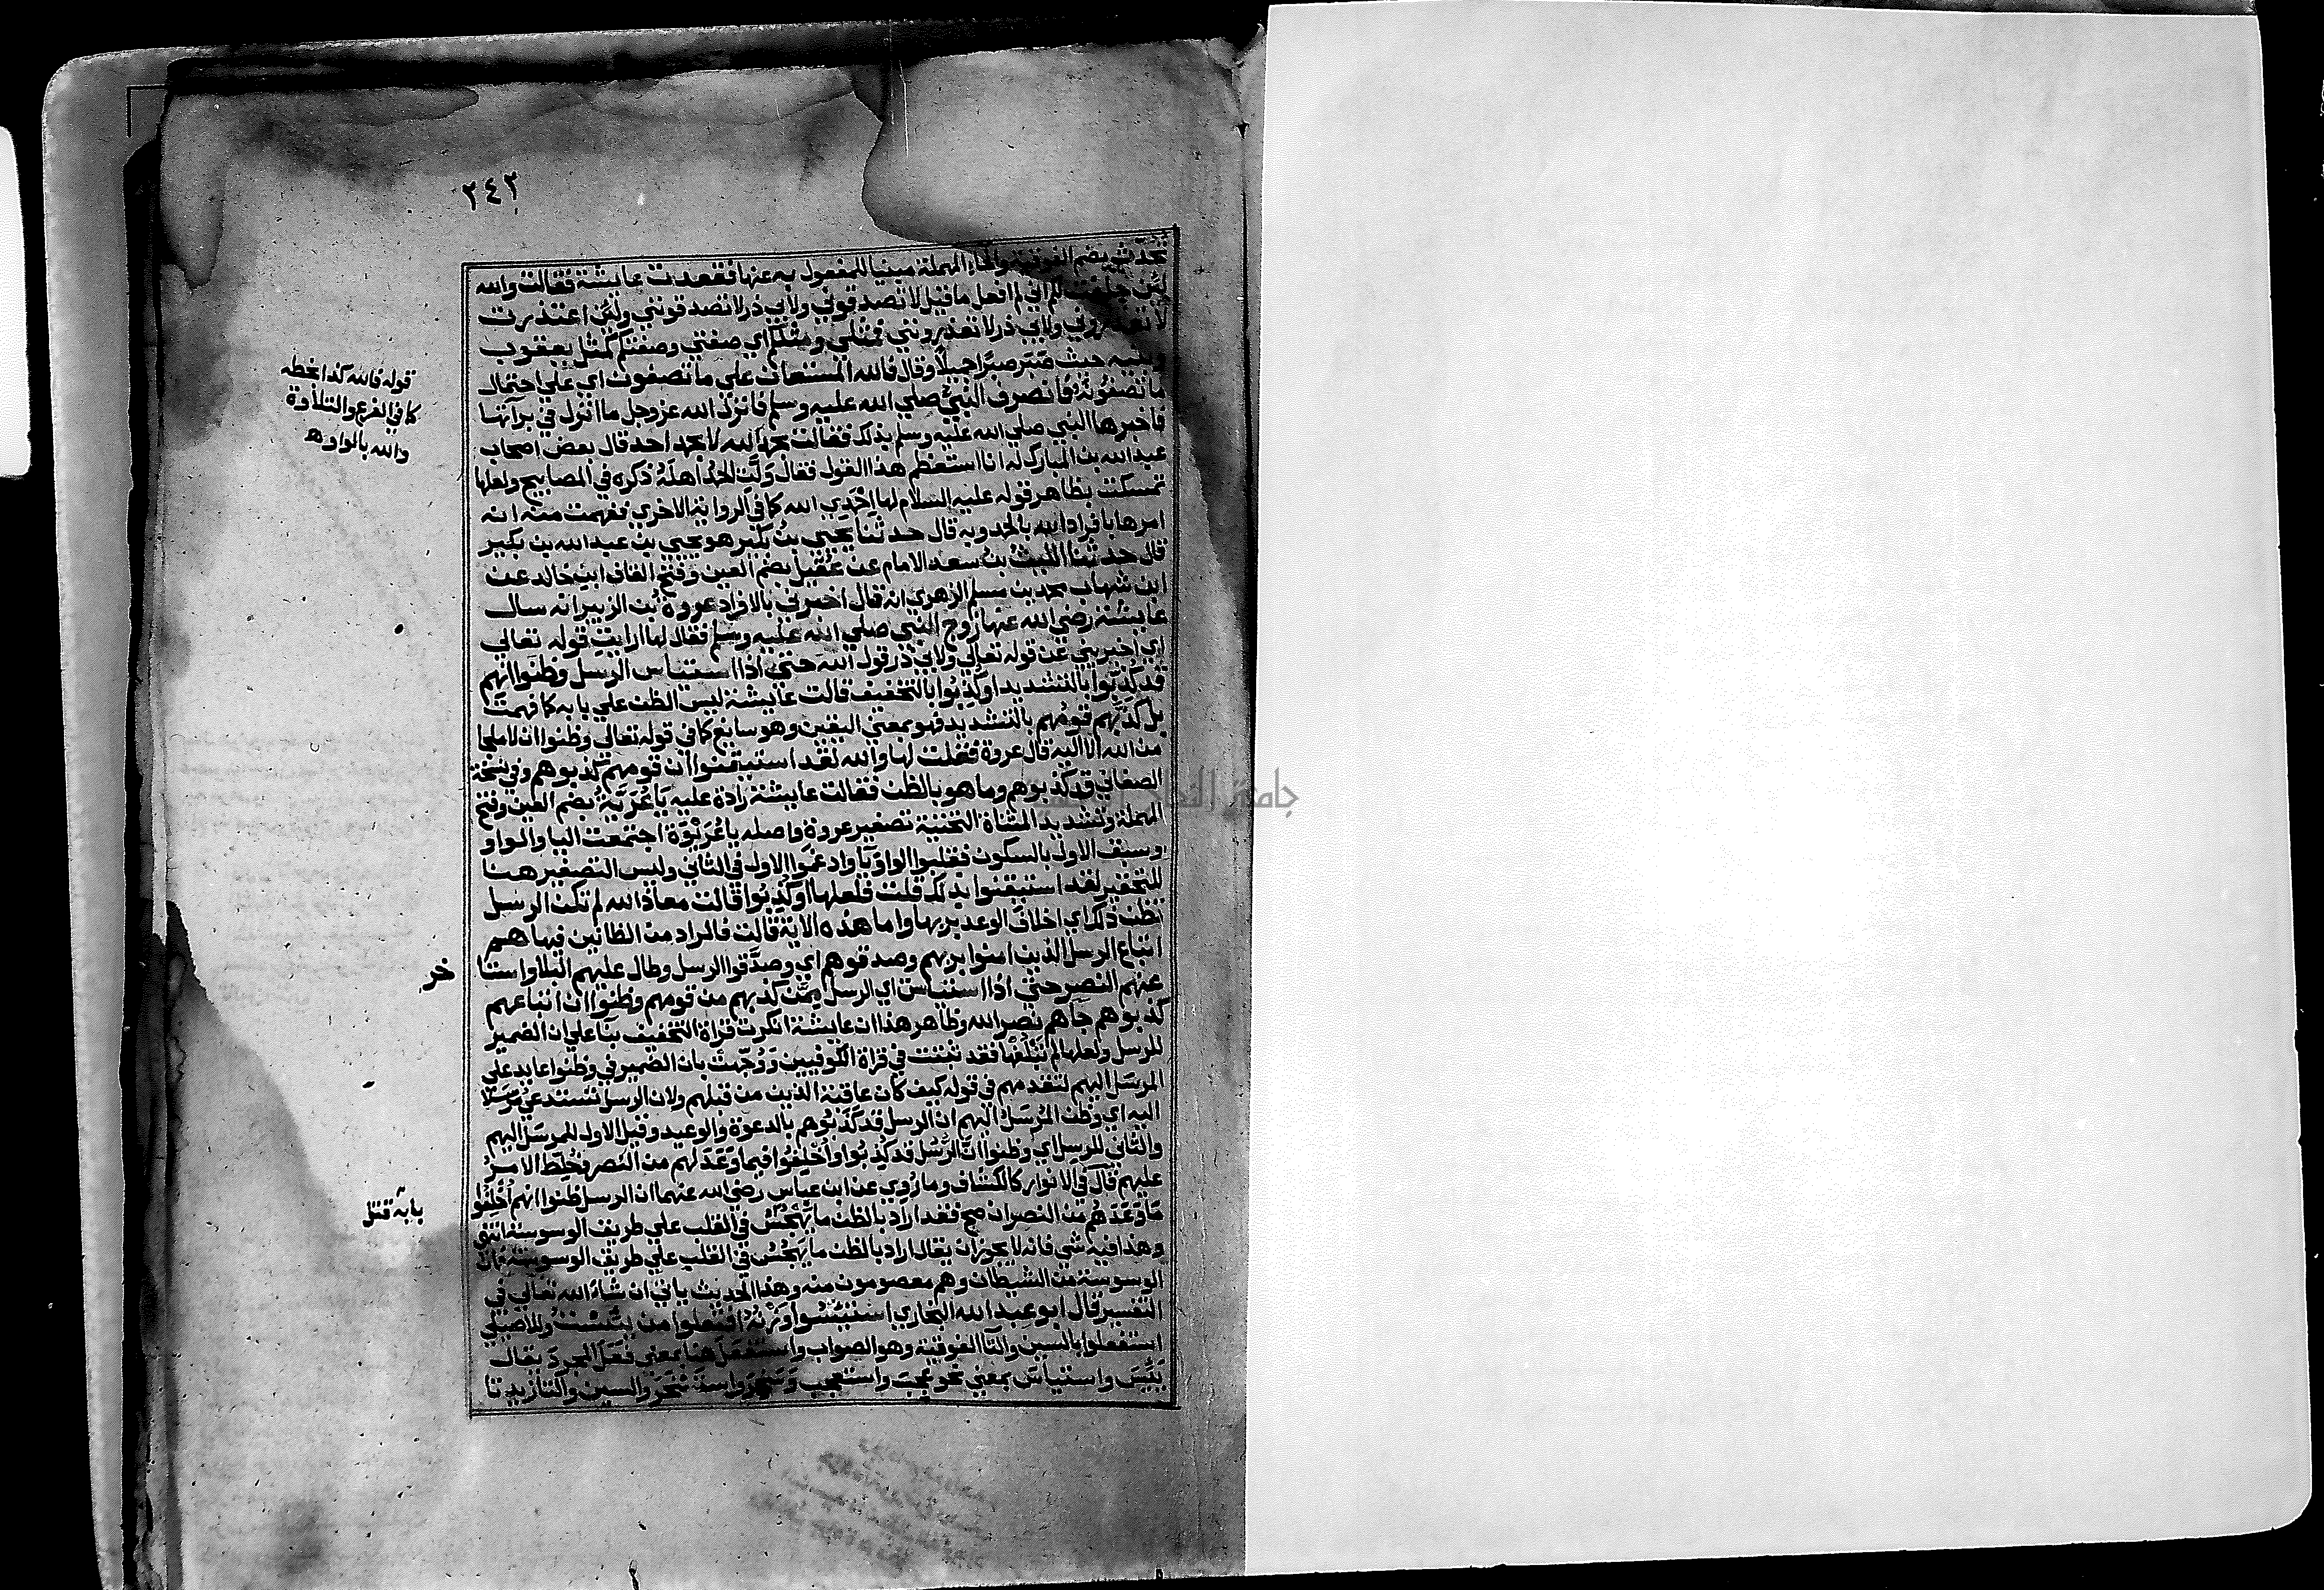 ٢٤٢
تحدث بضم الفوقية والحاء المهملة مبنيا للمفعول به عنها فقعدت عايشة فقالت والله
لئن حلفت لكم اني لم افعل ما قيل لا تصدقوني ولابي ذر لا تصدقونني ولئن اعتذرت
لا تعذروني ولابي ذر لا تعذرونني فمثلي ومثلكم اي صفتي وصفتكم كمثل يعقوب
وبنيه حيث صبر صبرا جميلا وقال فالله المستعان علي ما تصفون اي علي احتمال
ما تصفونه فانصرف النبي صلي الله عليه وسلم فانزل الله عز وجل ما انزل في براتها
فاخبرها النبي صلي الله عليه وسلم بذلك فقالت بحمد الله لا بحمد احد قال بعض اصحاب
عبد الله بن المبارك له انا استعظم هذا القول فقال ولت الحمد اهله ذكره في المصابيح ولعلها
تمسكت بظاهر قوله عليه السلام لها احمدي الله كما في الرواية الاخري ففهمت منه انه
امرها بافراد الله بالحمد وبه قال حدثنا يحيي بن بكير هو يحيي بن عبد الله بن بكير
قال حدثنا الليث بن سعد الامام عن عقيل بضم العين وفتح القاف ابن خالد عن
ابن شهاب محمد بن مسلم الزهري انه قال اخبرني بالافراد عروة بن الزبير انه سال
عايشة رضي الله عنها زوج النبي صلي الله عليه وسلم فقال لها ارايت قوله تعالي
اي اخبريني عن قوله تعالي ولابي ذر قول الله حتي اذا استياس الرسل وظنوا انهم
قد كذبوا بالتشديد او كذبوا بالتخفيف قالت عايشة ليس الظن علي بابه كما فهمت
بل كذبهم قومهم بالتشديد فهو بمعني اليقين وهو سايغ كما في قوله تعالي وظنوا ان لا ملجا
من الله الا اليه قال عروة فقلت لها والله لقد استيقنوا ان قومهم كذبوهم وفي نسخة
الصغاني قد كذبوهم وما هو بالظن فقالت عايشة رادة عليه يا عرية بضم العين وفتح
المهملة وتشديد المثناة التحتية تصغير عروة واصله يا عريوة اجتمعت اليا والواو
وسبق الاول بالسكون فقلبوا الواو يا وادغموا الاول في الثاني وليس التصغير هنا
للتحقير لقد استيقنوا بذلك قلت فلعلها او كذبوا قالت معاذ الله لم تكن الرسل
تظن ذلك اي اخلاف الوعد بربها واما هذه الاية قالت فالمراد من الظانين فيها هم
اتباع الرسل الذين امنوا بربهم وصدقوهم اي وصدقوا الرسل وطال عليهم البلا واستا
عنهم النصر حتي اذا استياس اي الرسل ممن كذبهم من قومهم وظنوا ان اتباعهم
كذبوهم جاهم نصر الله وظاهر هذا ان عايشة انكرت قراة التخفيف بنا علي ان الضمير
للرسل ولعلها لم تبلغها فقد ثبتت في قراة الكوفيين ووجهت بان الضمير في وظنوا عايد علي
المرسل اليهم لتقدمهم في قوله كيف كان عاقبة الذين من قبلهم ولان الرسل تستدعي مرسلا
اليه اي وظن المرسل اليهم ان الرسل قد كذبوهم بالدعوة والوعيد وقيل الاول للمرسل اليهم
والثاني للرسل اي وظنوا ان الرسل قد كذبوا واخلفوا فيما وعد لهم من النصر وخلط الامر
عليهم قال في الانوار كالكشاف وما روي عن ابن عباس رضي الله عنهما ان الرسل ظنوا انهم اخلفوا
ما وعدهم من النصر ان صح فقد اراد بالظن ما يهجس في القلب علي طريق الوسوسة انتهي
وهذا فيه شي فانه لا يجوز ان يقال اراد بالظن ما يهجس في القلب علي طريق الوسوسة فان
الوسوسة من الشيطان وهم معصومون منه وهذا الحديث ياتي ان شاء الله تعالي في
التفسير قال ابو عبد الله البخاري استيئسوا وزنه افتعلوا من يئست وللاصيلي
استفعلوا بالسين والتا الفوقية وهو الصواب واستفعل هنا بمعني فعل المجرد يقال
يئس واستياس بمعني نحو عجب واستعجب وسخر واستسخر والسين والتا زيدتا
قوله فالله كذا بخطه
كما في الفرع والتلاوة
والله بالواو ه
خر
بابه قتل